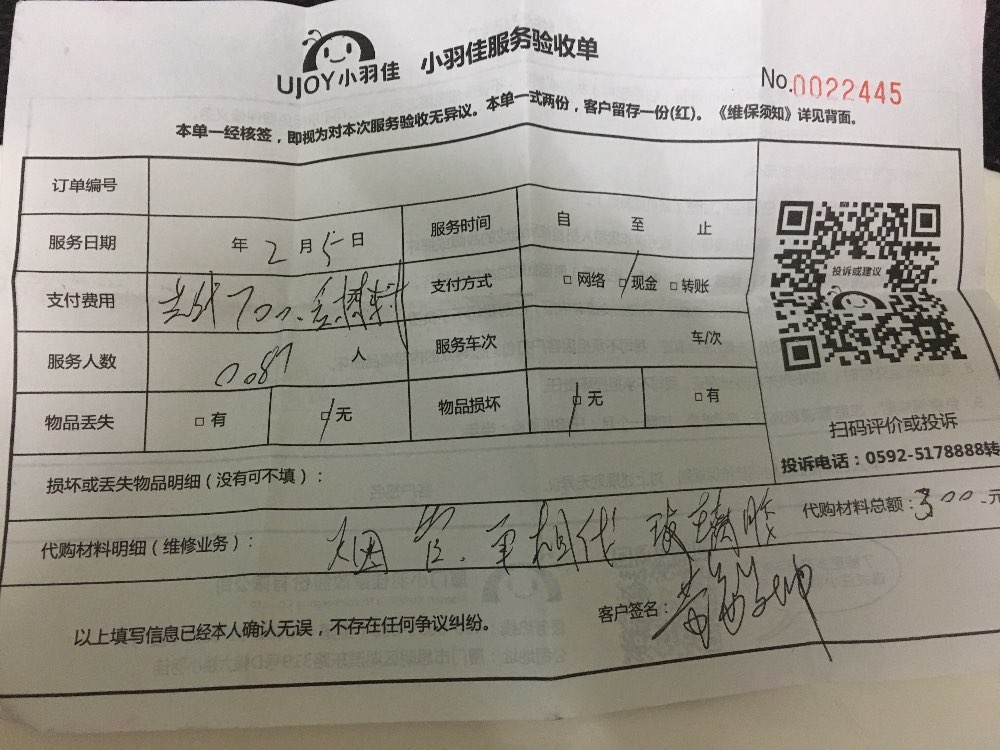 UJOY小羽佳 小羽佳服务验收单
No.0022445
本单一经核签，即视为对本次服务验收无异议。本单一式两份，客户留存一份(红)。《维保须知》详见背面。
订单编号
服务日期 年 2 月 5 日 服务时间 自 至 止
支付费用 支付方式 □ 网络 □ 现金 □ 转账
服务人数 人 服务车次 车/次
物品丢失 □ 有 □ 无 物品损坏 □ 无 □ 有
投诉或建议
扫码评价或投诉
投诉电话：0592-5178888转
损坏或丢失物品明细（没有可不填）：
代购材料明细（维修业务）： 代购材料总额：300 元
以上填写信息已经本人确认无误，不存在任何争议纠纷。 客户签名：